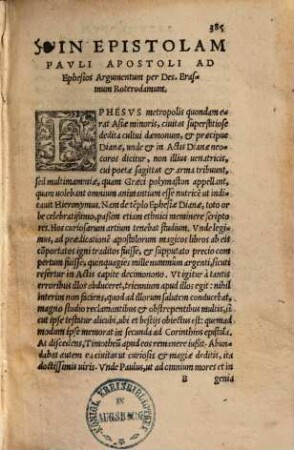 385
IN EPISTOLAM
PAVLI APOSTOLI AD
Ephesios Argumentum per Des. Eras-
mum Roterodamum.
EPHESVS metropolis quondam e-
rat Asiæ minoris, ciuitas superstitiose
dedita cultui dæmonum, & præcipue
Dianæ, unde & in Actis Dianæ neo-
coros dicitur, non illius uenatricis,
cui poetæ sagittas & arma tribuunt,
sed multimammiæ, quam Græci polymaston appellant,
quam uolebant omnium animantium esse nutricē ut indi-
cauit Hieronymus. Nam de tēplo Ephesiæ Dianæ, toto or
be celebratissimo, passim etiam ethnici meminere scripto
res. Hos curiosarum artium tenebat studium. Vnde legi-
mus, ad prædicationē apostolorum magicos libros ab eis
cōportatos igni traditos fuisse, & supputato precio eorum
per summam, quinquaginta mille nummum argenti, sicuti
refertur in Actis capite decimonono. Vt igitur à tantis
erroribus illos abduceret, triennium apud illos egit: nihil
interim non faciens, quod ad illorum salutem conducebat,
magno studio reclamantibus & obstrepentibus multis, si-
cut ipse testatur alicubi, ubi et bestijs obiectus est: quemad
modum ipse memorat in secunda ad Corinthios epistola.
At discedens, Timotheū apud eos remanere iussit. Abun-
dabat autem ea ciuitas ut curiosis & magiæ deditis, ita
doctissimis uiris. Vnde Paulus, ut ad omnium mores et in
B genia
KÖNIGL. KREISBIBLIOTHEK
IN
AUGSBURG